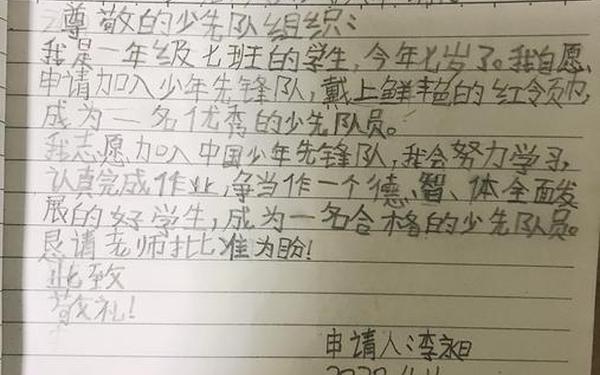 尊敬的少先队组织:
我是一年级七班的学生,今年七岁了。我自愿、
申请加入少年先锋队,戴上鲜艳的红领巾,
成为一名优秀的少先队员。
我志愿加入中国少年先锋队,我会努力学习,
认真完成作业,争当作一个德、智、体全面发
展的好学生,成为一名合格的少先队员。
恳请老师批准为盼!
此致
敬礼!
申请人:李